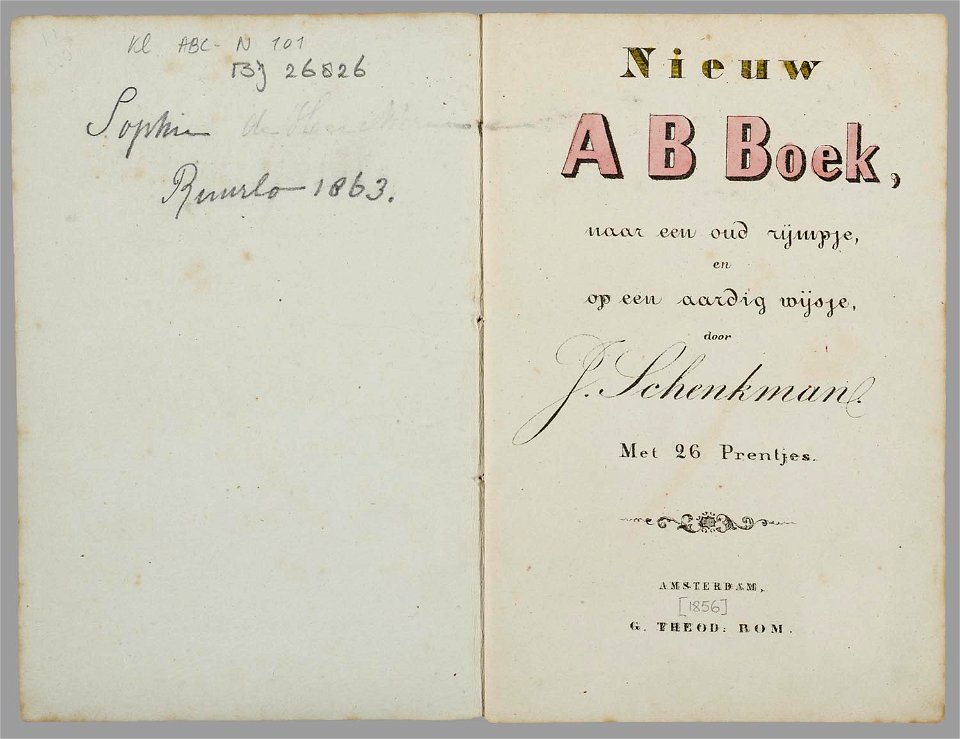 Kl ABC- N 101
Bij 26826
Sophie de
Ruurlo 1863.
Nieuw
A B Boek,
naar een oud rijmpje,
en
op een aardig wijsje,
door
J. Schenkman.
Met 26 Prentjes.
AMSTERDAM,
[1856]
G. THEOD: BOM.